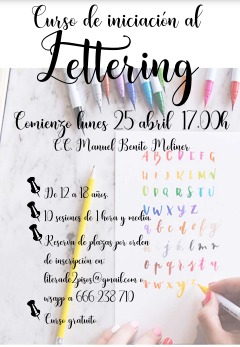 Curso de iniciación al
Lettering
Comienzo lunes 25 abril 17.00h
C.C. Manuel Benito Moliner
A B C D E F G
H I J K L M N
O P Q R S T U
V W X Y Z
De 12 a 18 años.
10 sesiones de 1 hora y media.
Reserva de plazas por orden
de inscripción en:
literade2pisos@gmail.com o
wsapp a 666 238 710
Curso gratuito